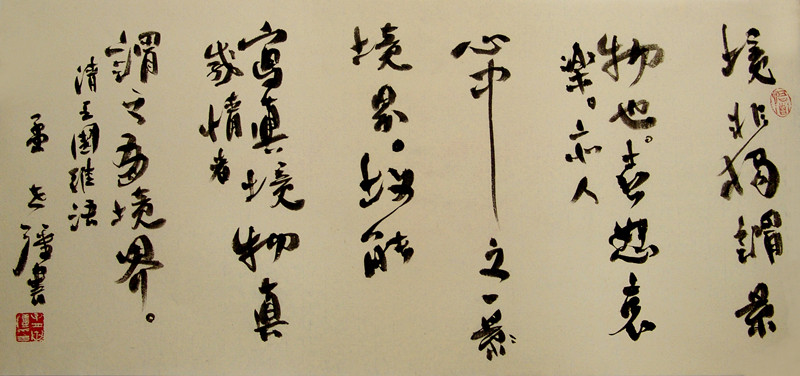 境非獨謂景
物也。喜怒哀
樂。亦人
心中之一景
境界。故能
寫真境物真
感情者
謂之有境界。
清王國維語
孟書